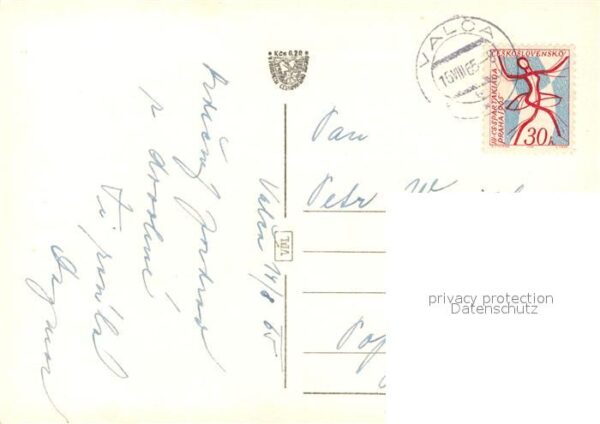 Kčs 0,20
VALČA
15.VIII.65
ČESKOSLOVENSKO
III. CS. SPARTAKIÁDA
PRAHA 1965
30h
Srdečný pozdrav
z dovolené
Ti posílá
Dagmar
Valča 14/8 65
Pan
Petr W
Pop
privacy protection
Datenschutz